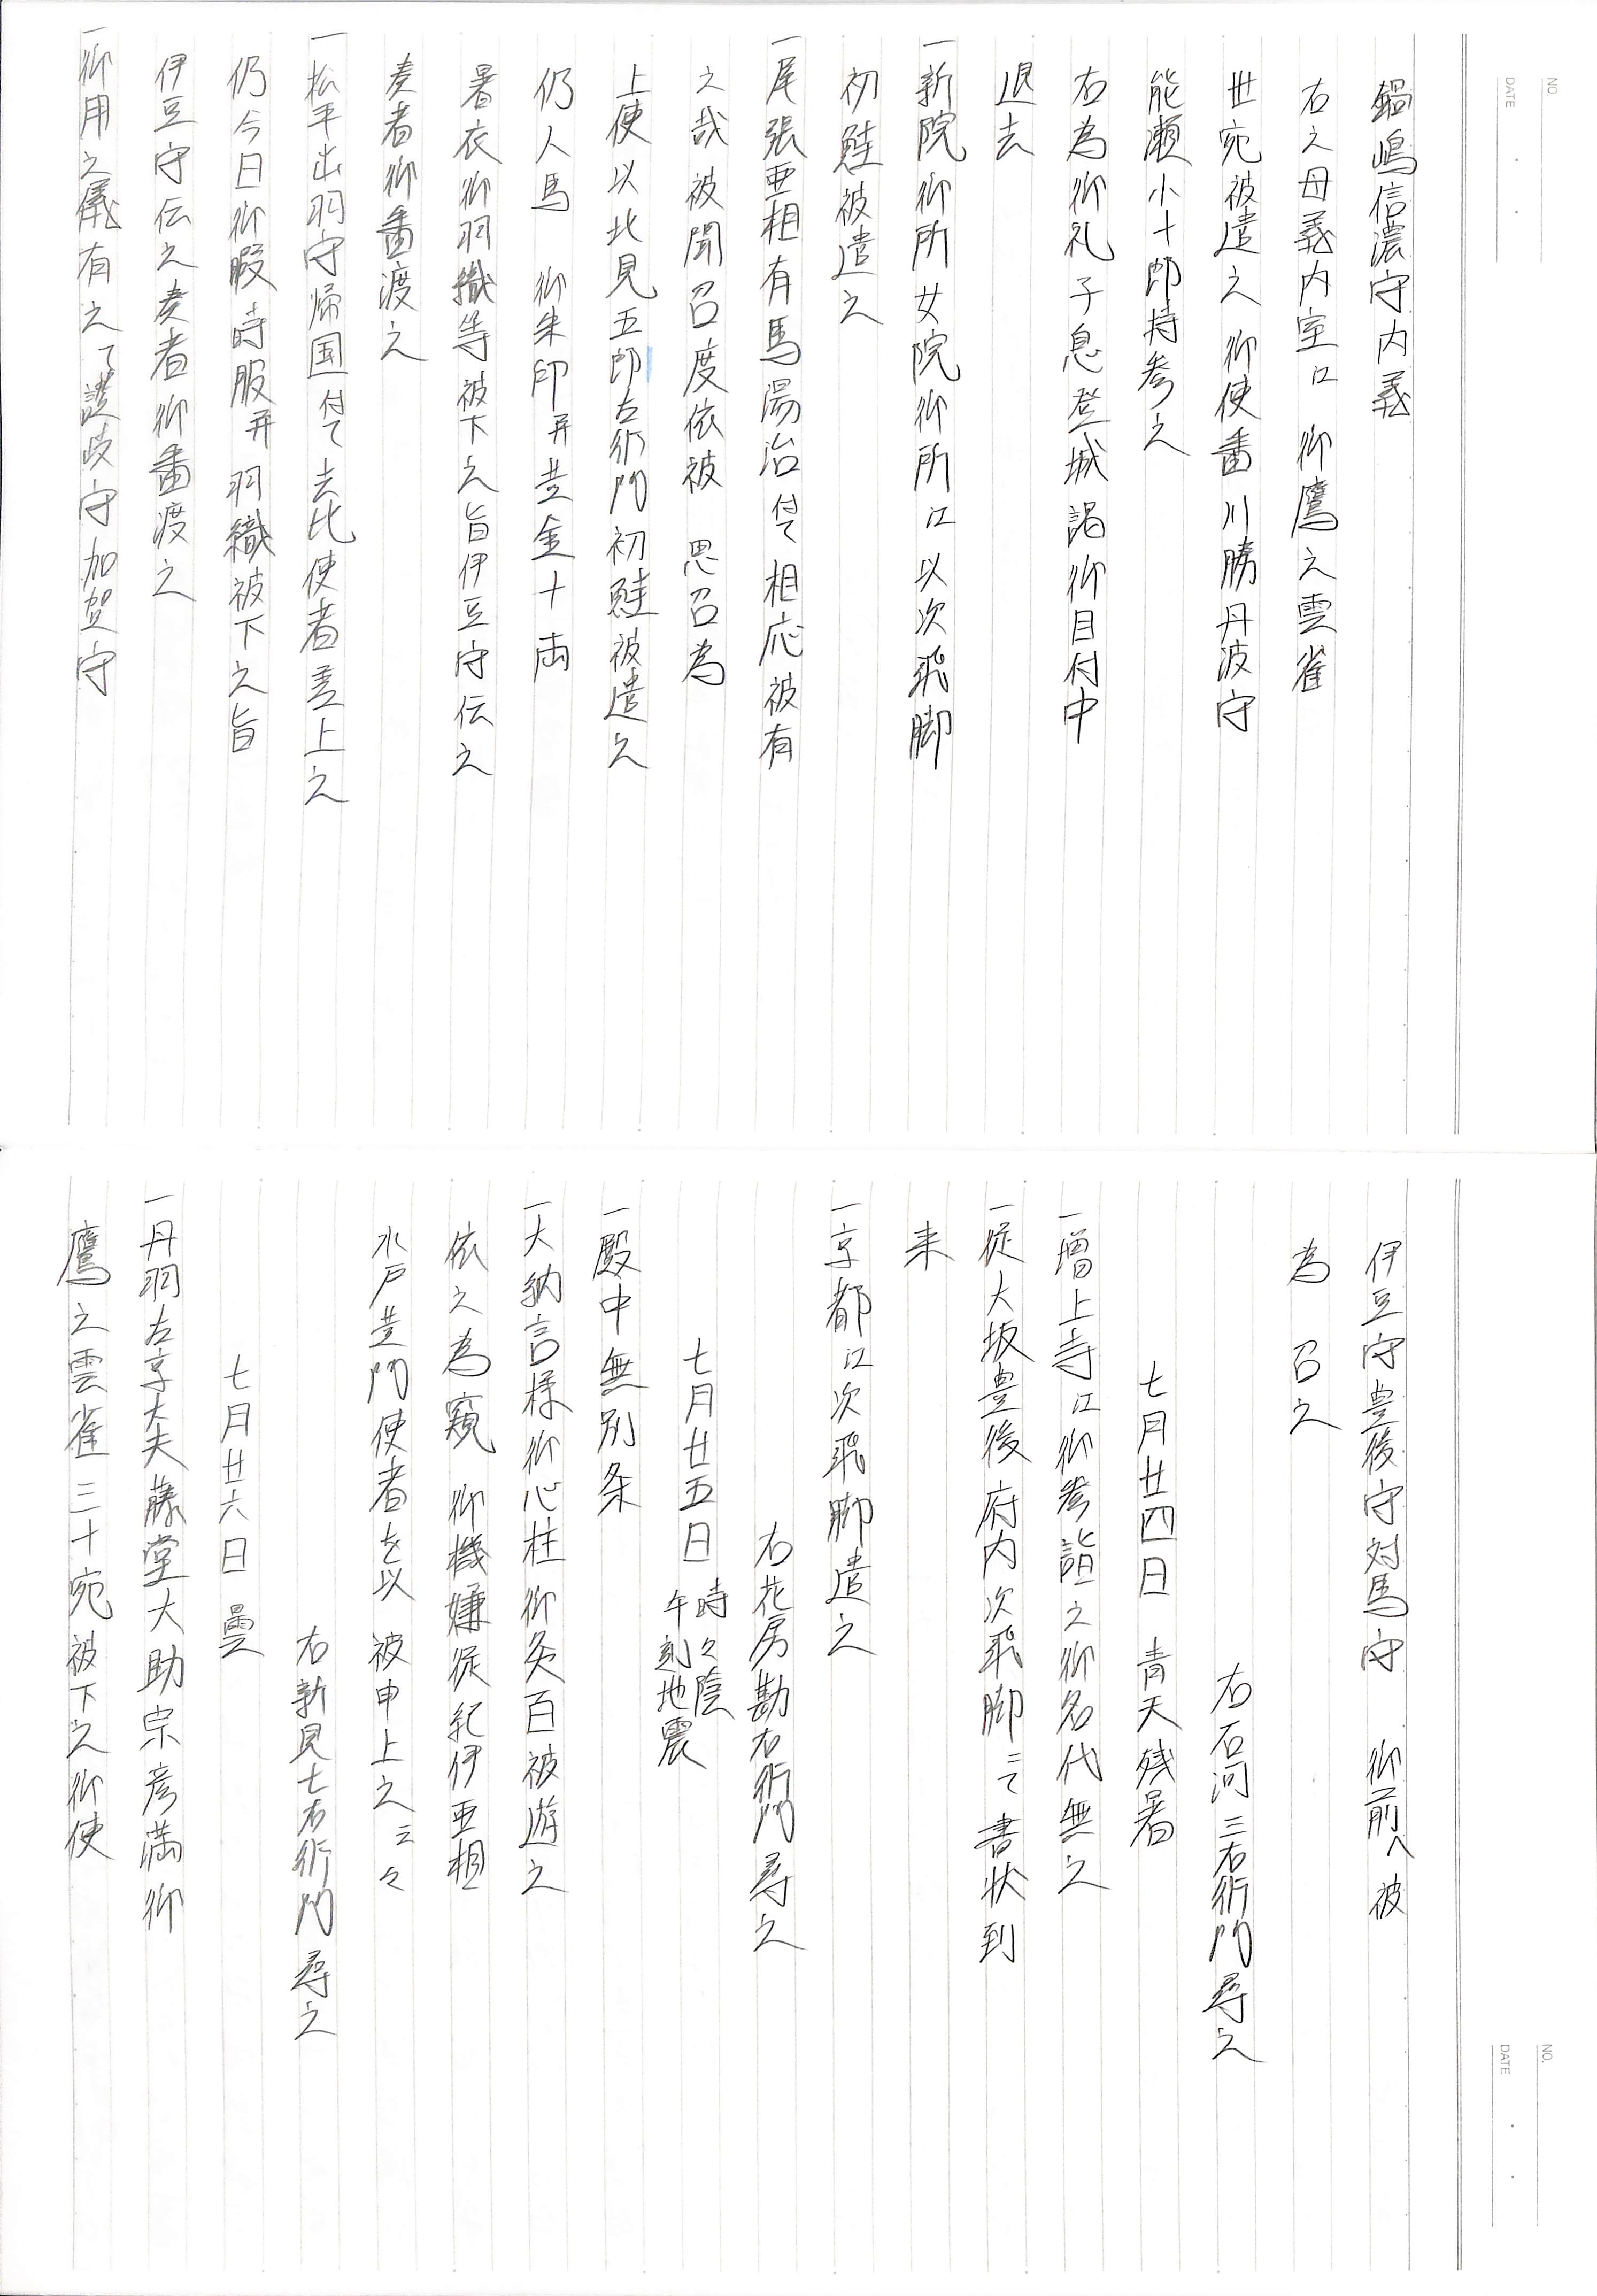 鍋嶋信濃守内義
右之母義内室江 御鷹之雲雀
廿宛被遣之 御使番川勝丹波守
能瀬小十郎持参之
右為御礼子息登城謁御目付中
退去
一新院御所女院御所江以次飛脚
初鮭被遣之
一尾張亜相有馬湯治付て相応被有
之哉被聞召度依被 思召為
上使以北見五郎左衛門初鮭被遣之
仍人馬 御朱印并黄金十両
暑衣御羽織等被下之旨伊豆守伝之
奏者御番渡之
一松平出羽守帰国付て去比使者差上之
仍今日御暇時服并羽織被下之旨
伊豆守伝之奏者御番渡之
一御用之儀有之て讃岐守加賀守
伊豆守豊後守対馬守 御前へ被
為 召之
右石河三右衛門尋之
七月廿四日 青天残暑
一増上寺江御参詣之御名代無之
一従大坂豊後府内次飛脚ニて書状到
来
一京都江次飛脚遣之
右花房勘右衛門尋之
七月廿五日 時々陰 午刻地震
一殿中無別条
一大納言様御心柱御灸百被遊之
依之為窺 御機嫌従紀伊亜相
水戸黄門使者を以 被申上之云々
右新見七右衛門尋之
七月廿六日 曇
一丹羽左京大夫藤堂大助宗彦満御
鷹之雲雀三十宛被下之御使
NO.
DATE ・ ・
NO.
DATE ・ ・